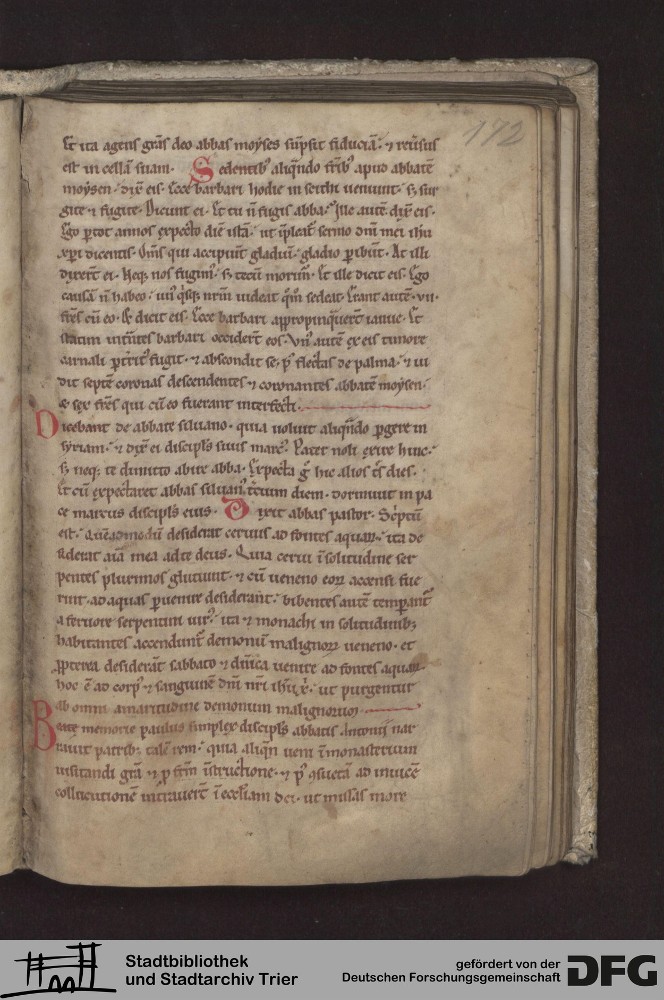 172
Et ita agens gr̄as deo abbas moẏses sūpsit fiduciā. ⁊ reūsus
est in cellā suam. Sedentib᷒ aliqn̄do fr̄ib᷒ apud abbatē
moẏsen. dix̄ eis. Ecce barbari hodie in scithi ueniunt. s; sur
gite ⁊ fugite. Dicunt ei. Et tu n̄ fugis abba. Ille autē dix̄ eis.
Ego ꝑ tot annos expecto diē istā. ut īpleat᷒ sermo dn̄i mei ihu
xp̄i dicentis. Om̄s qui accipiūt gladiū. gladio ꝑibūt. At illi
dixerт̄ ei. Neq; nos fugim᷒. s; tecū morim᷒. Et ille dicit eis. Ego
causā n̄ habeo. un᷒ q̇sq; nr̄m uideat qm̄ sedeat. Erant autē .vii.
fr̄es cū eo. Et dicit eis. Ecce barbari appropinq̄uert̄ ianue. Et
statim intn̄tes barbari occidert̄ eos. Vn᷒ autē ex eis timore
carnali ꝑtrit᷒ fugit. ⁊ abscondit se. p᷒ flectas de palma. ⁊ ui
dit septē coronas descendentes ⁊ coronantes abbatē moẏsen.
⁊ sex fr̄es qui cū eo fuerant interfecti.
Dicebant de abbate siluano. quia uoluit aliqn̄do ꝑgere in
sẏriam. ⁊ dix̄ ei discipl̄s suus marc᷒. Pater noli exire hinc.
s; neq; te dimitto abire abba. Expecta g̊ hic alios t̄s dies.
Et cū expectaret abbas siluan᷒ t̄cium diem. dormiuit in pa
ce marcus discipl̄s eius. Dixit abbas pastor. Sc̄ptū
est. Quēadmodū desiderat ceruus ad fontes aquaꝝ. ita de
siderat aīa mea ad te deus. Quia cerui ī solitudine ser
pentes plurimos glutiunt. ⁊ cū ueneno eoꝝ accensi fue
rint. ad aquas ꝑuenire desiderant. bibentes autē temꝑant᷒
a feruore serpentium uir᷒. ita ⁊ monachi in solitudinib;
habitantes accendunt᷒ demonū malignoꝝ ueneno. et
ꝓpterea desiderāt sabbato ⁊ dn̄ica uenire ad fontes aquaꝝ.
hoc ē ad corp᷒ ⁊ sanguinē dn̄i nr̄i ihu x̄. ut purgentur
ab omni amaritudine demonum malignorum
Beate memorie paulus simplex discipl̄s abbatis Antonij nar
rauit patrib; talē rem. quia aliqn̄ ueni ī monasterium
uisitandi gr̄a ⁊ ꝓ fr̄m īstructione. ⁊ p᷒ ꝯsuetā ad inuicē
collocutionē intrauert̄ ī ecclesiam dei. ut missas more
Stadtbibliothek
und Stadtarchiv Trier
gefördert von der
Deutschen Forschungsgemeinschaft
DFG